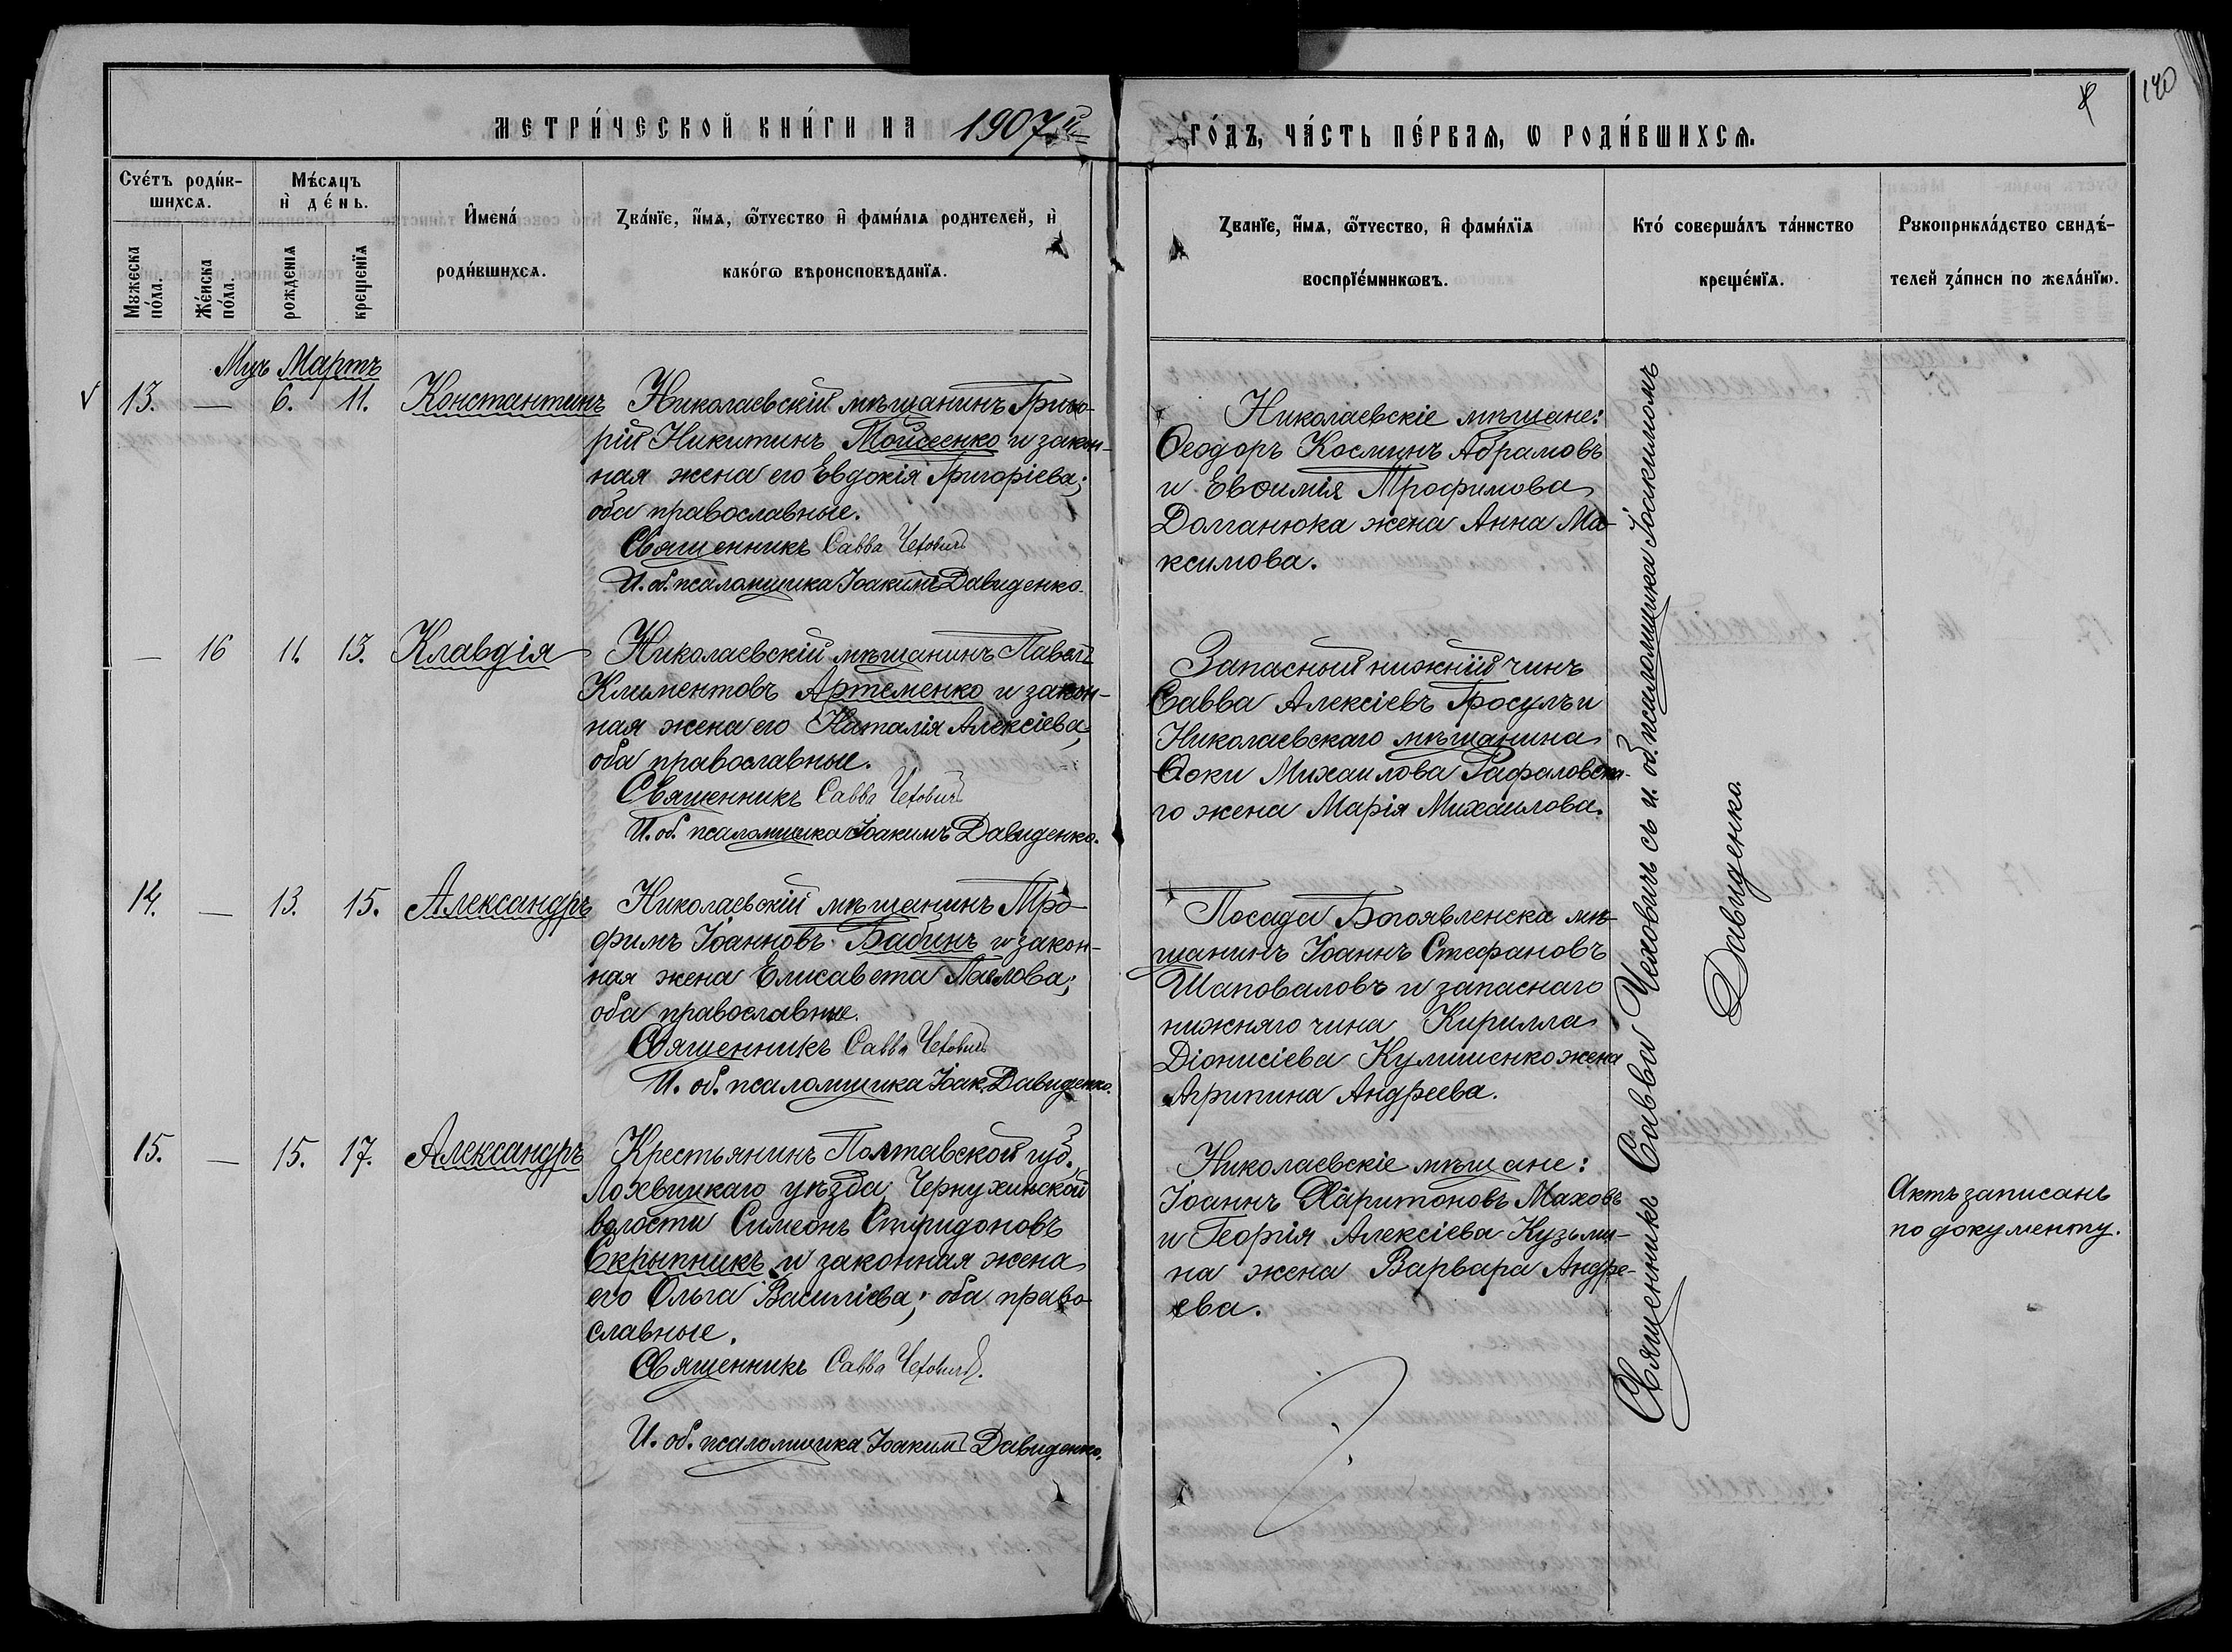 МЕТРИ́ЧЕСКОЙ КНИ́ГИ НА 1907й
ГО́ДЪ, ЧА́СТЬ ПЕ́РВАѦ, Ѡ РОДИ́ВШИХСѦ.
140
Сче́тъ роди́в-
шихсѧ.
Мѣ́сѧцъ
и҆ де́нь.
Мꙋжеска
по́ла.
Же́нска
по́ла.
рожденїѧ
крещенїѧ
И҆мена́
роди́вшихсѧ.
Зва́нїе, и҆́мѧ, ѻ҆́тчество и҆ фами́лїѧ родителей, и҆
како́гѡ вѣроисповѣданїѧ.
Званїе, и҆́мѧ, ѻ҆́тчество, и҆ фами́лїѧ
воспрїе́мникѡвъ.
Кто́ соверша́лъ та́инство
креще́нїѧ.
Рꙋкоприкла́дство свидѣ́-
телей за́писи по жела́нїю.
Мцъ Мартъ
13. — 6. 11. Константинъ
Николаевскій мѣщанинъ Григо-
рій Никитинъ Мойсеенко и закон-
ная жена его Евдокія Григоріева;
оба православные.
Священникъ Савва Чеховичъ
И. об. псаломщика Іоакимъ Давиденко.
Николаевскіе мѣщане:
Ѳеодоръ Косминъ Абрамовъ
и Евѳимія Трофимова
Долганюка жена Анна Ма-
ксимова.
— 16 11. 13. Клавдія
Николаевскій мѣщанинъ Павелъ
Климентовъ Артеменко и закон-
ная жена его Наталія Алексіева,
оба православные.
Священникъ Савва Чеховичъ
И. об. псаломщика Іоакимъ Давиденко.
Запасный нижній чинъ
Савва Алексіевъ Гросулъ и
Николаевскаго мѣщанина
Ѳоки Михаилова Рафаловска-
го жена Марія Михаилова.
14. — 13. 15. Александръ
Николаевскій мѣщанинъ Тро-
фимъ Іоанновъ Бабинъ и закон-
ная жена Елисавета Павлова;
оба православные.
Священникъ Савва Чеховичъ
И. об. псаломщика Іоак. Давиденко.
Посада Богоявленска мѣ-
щанинъ Іоаннъ Стефановъ
Шаповаловъ и запаснаго
нижняго чина Кирилла
Діонисіева жена
Агрипина Андреева.
15. — 15. 17. Александръ
Крестьянинъ Полтавской губ.,
Лохвицкаго уѣзда, Чернухинской
волости Симеонъ Спиридоновъ
Скрыпникъ и законная жена
его Ольга Василіева; оба право-
славные.
Священникъ Савва Чеховичъ.
И. об. псаломщика Іоакимъ Давиденко.
Николаевскіе мѣщане:
Іоаннъ Харитоновъ Маховъ
и Георгія Алексіева Кузьми-
на жена Варвара Андре-
ева.
Священникъ Савва Чеховичъ съ и. об. псаломщика Іоакимомъ
Давиденко.
Актъ записанъ
по документу.